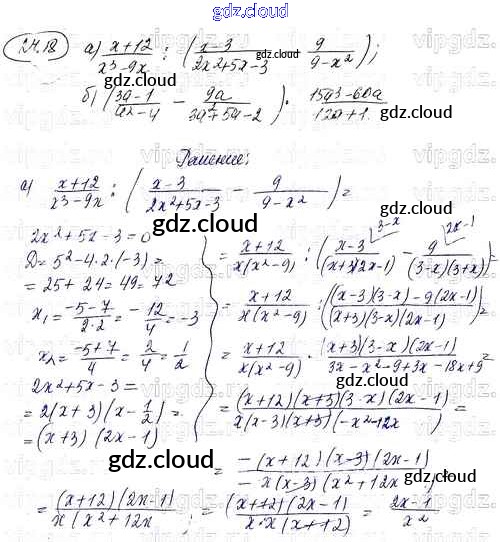 gdz.cloud
24.18 а) x+12 / x³-9x : ( x-3 / 2x²+5x-3 - 9 / 9-x² );
б) ( 3a-1 / a²-4 - 9a / 3a²+5a-2 ) · 15a³-60a / 12a+1
Решение:
а) x+12 / x³-9x : ( x-3 / 2x²+5x-3 - 9 / 9-x² ) =
2x²+5x-3=0
D=5²-4·2·(-3)=
=25+24=49=7²
x₁ = -5-7 / 2·2 = -12 / 4 = -3
x₂ = -5+7 / 4 = 2 / 4 = 1 / 2
2x²+5x-3=
=2(x+3)(x-1/2)=
=(x+3)(2x-1)
= x+12 / x(x²-9) : ( x-3 / (x+3)(2x-1) - 9 / (3-x)(3+x) ) =
= x+12 / x(x²-9) : ( (x-3)(3-x)-9(2x-1) / (x+3)(3-x)(2x-1) ) =
= x+12 / x(x²-9) · (x+3)(3-x)(2x-1) / 3x-x²-9+3x-18x+9 =
= (x+12)(x+3)(3-x)(2x-1) / x(x-3)(x+3)(-x²-12x) =
= -(x+12)(x-3)(2x-1) / -x(x-3)(x²+12x) =
= (x+12)(2x-1) / x(x²+12x = (x+12)(2x-1) / x·x(x+12) = 2x-1 / x²
gdz.cloud